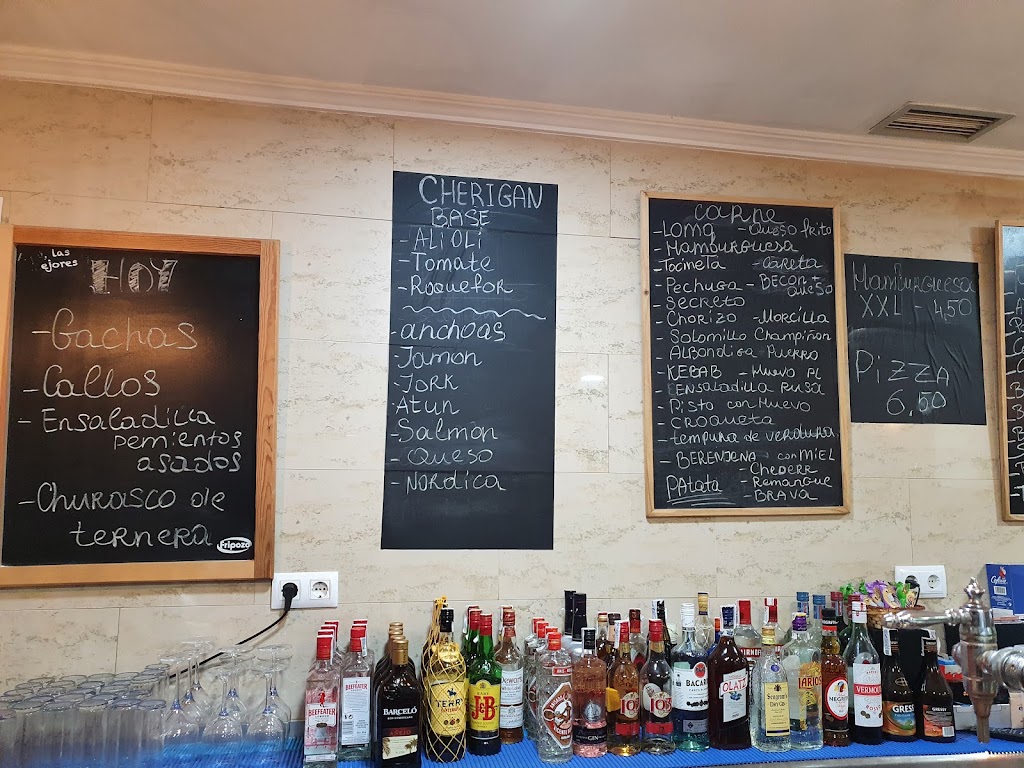 las
ejores
HOY
-Gachas
-Callos
-Ensaladilla
pemientos
asados
-Churasco de
ternera
Fripozo
CHERIGAN
BASE
-ALIOLI
-Tomate
-Roquefor
-anchoas
-Jamon
-Jork
-Atun
-Salmon
-Queso
-NORDICA
carne
-LOMO -Queso frito
-Hamburguesa
-Tocineta -Careta
-Pechuga -BECON+
queso
-Secreto
-Chorizo -Morcilla
-Solomillo Champiñon
-ALBONDIGA Puerro
-KEBAB -Huevo PL
-ENSALADILLA RUSA
-Pisto con Huevo
-CROQUETA
-Tempura de verdura
-BERENJENA con MIEL
PAtata -Chederr
-Remangue
-BRAVA
Hamburguesa
XXL - 4,50
Pizza
6,50
BEEFEATER
BEEFEATER
BARCELÓ
AÑEJO
TERRY
J&B
GIN
JB
JB
BACAR
OLATA
Seagram's
Dry Gin
LARIOS
NEGRITA
VERMOUT
GRESS
GRESSY